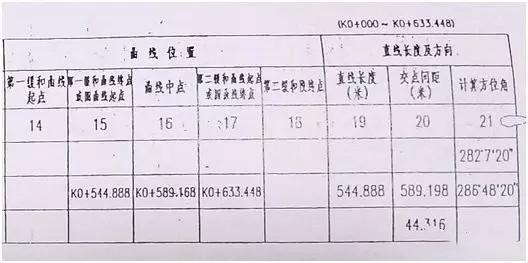 (K0+000～K0+633.448)
曲线位置 直线长度及方向
第一缓和曲线起点 第一缓和曲线终点或圆曲线起点 曲线中点 第二缓和曲线起点或圆曲线终点 第二缓和段终点 直线长度(米) 交点间距(米) 计算方位角
14 15 16 17 18 19 20 21
282°7'20"
K0+544.888 K0+589.168 K0+633.448 544.888 589.198 286°48'20"
44.316